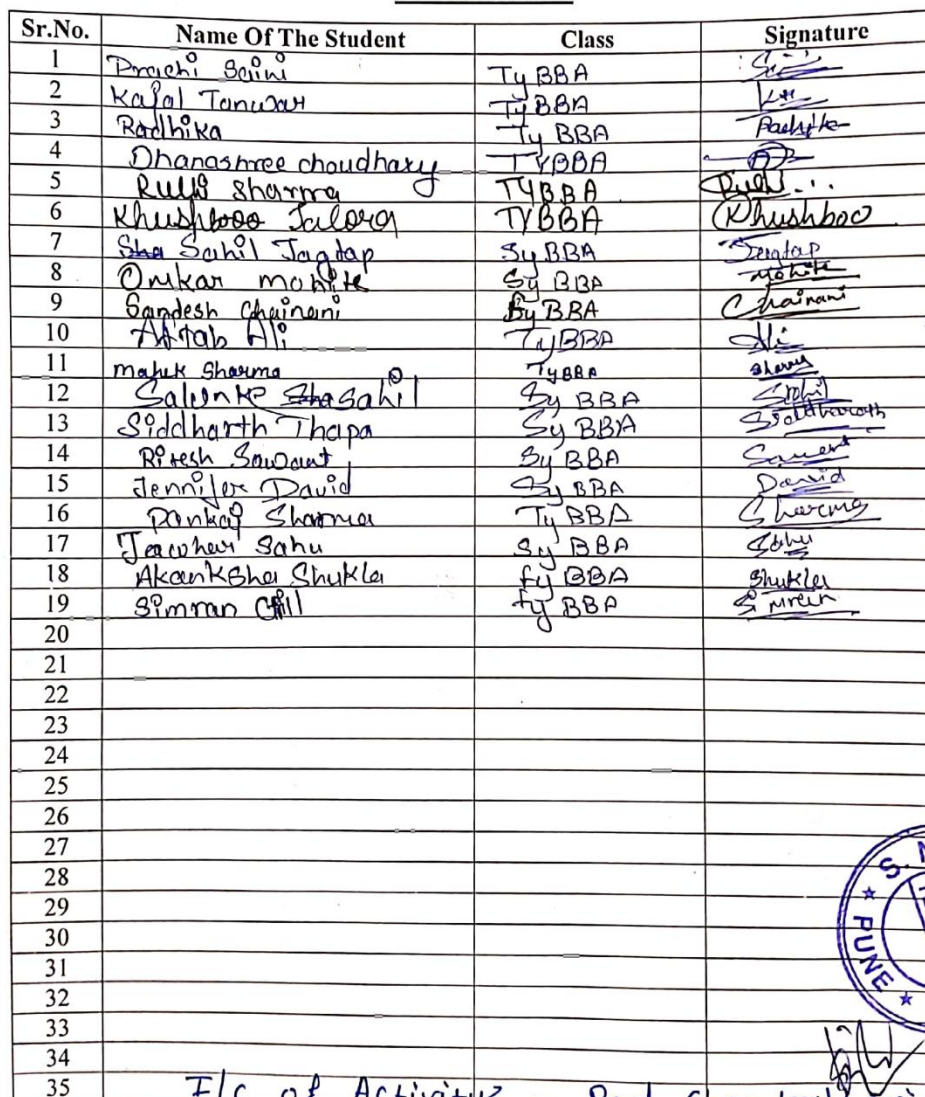 Sr.No. Name Of The Student Class Signature
1 Prachi Saini Ty BBA
2 Kajal Tanwar Ty BBA
3 Radhika Ty BBA Radhika
4 Dhanashree choudhary TYBBA
5 Rushi Sharma TYBBA Rushi...
6 Khushboo Jalora TYBBA Khushboo
7 Sha Sahil Jagtap Sy BBA Jagtap
8 Omkar mohite Sy BBA Mohite
9 Sandesh Chainani Sy BBA Chainani
10 Aftab Ali Ty BBA Ali
11 mahek Sharma TyBBA Sharma
12 Salunke Sha Sahil Sy BBA Sahil
13 Siddharth Thapa Sy BBA Siddharth
14 Ritesh Sawant Sy BBA Sawant
15 Jennifer David Sy BBA David
16 Pankaj Sharma Ty BBA Sharma
17 Sahu Sy BBA Sahu
18 Akanksha Shukla Fy BBA Shukla
19 Simran Gill Fy BBA Simran
20
21
22
23
24
25
26
27
28
29
30
31
32
33
34
35 I/c of Activity
S.
PUNE